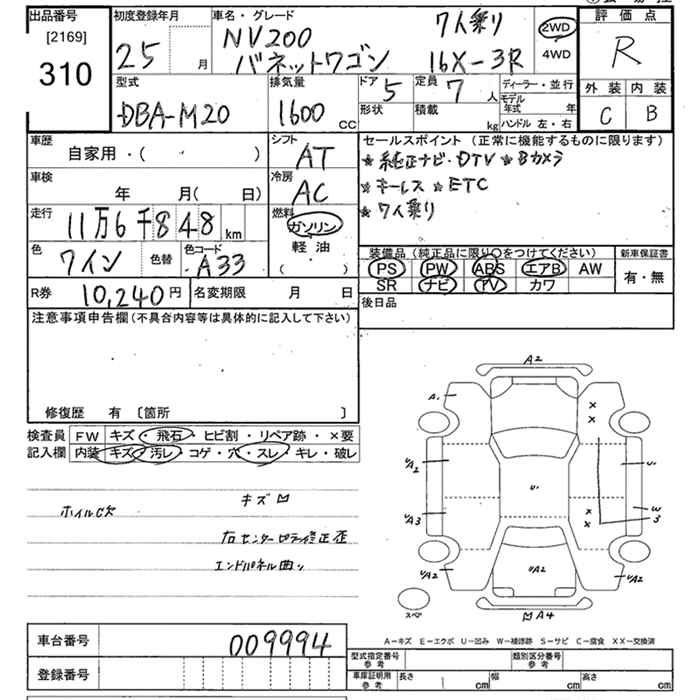 出品番号
[2169]
310
初度登録年月
25 月
車名・グレード
NV200 7人乗り
バネットワゴン 16X-3R
2WD
4WD
評価点
R
外装 内装
C B
型式
DBA-M20
排気量
1600 CC
ドア 5
定員 7 人
形状
積載 kg
ディーラー・並行
モデル年式 年
ハンドル 左・右
車歴
自家用・( )
シフト
AT
車検
年 月( 日)
冷房
AC
走行
11万6千848 km
燃料
ガソリン
軽油
( )
色
ワイン
色替
色コード
A33
R券 10,240円
名変期限 月 日
セールスポイント (正常に機能するものに限ります)
★純正ナビ・DTV ★Bカメラ
★キーレス ★ETC
★7人乗り
装備品 (純正品に限り○をつけてください)
PS PW ABS エアB AW
SR ナビ TV カワ
新車保証書
有・無
後日品
注意事項申告欄(不具合内容等は具体的に記入して下さい)
修復歴 有 〔箇所 〕
検査員
記入欄
FW キズ・飛石・ヒビ割・リペア跡・×要
内装 キズ・汚レ・コゲ・穴・スレ・キレ・破レ
ホイルC欠 キズ凹
右センターピラー修正歪
エンドパネル曲り
A2
A1
x
x
UA2
U1
U1
UA3
x
x
W
3
UA2
UA2
UA2
スペア
凹A4
A－キズ E－エクボ U－凹み W－補修跡 S－サビ C－腐食 XX－交換済
車台番号 009994
登録番号
型式指定番号
参考
類別区分番号
参考
車庫証明用
参考
長さ cm
幅 cm
高さ cm